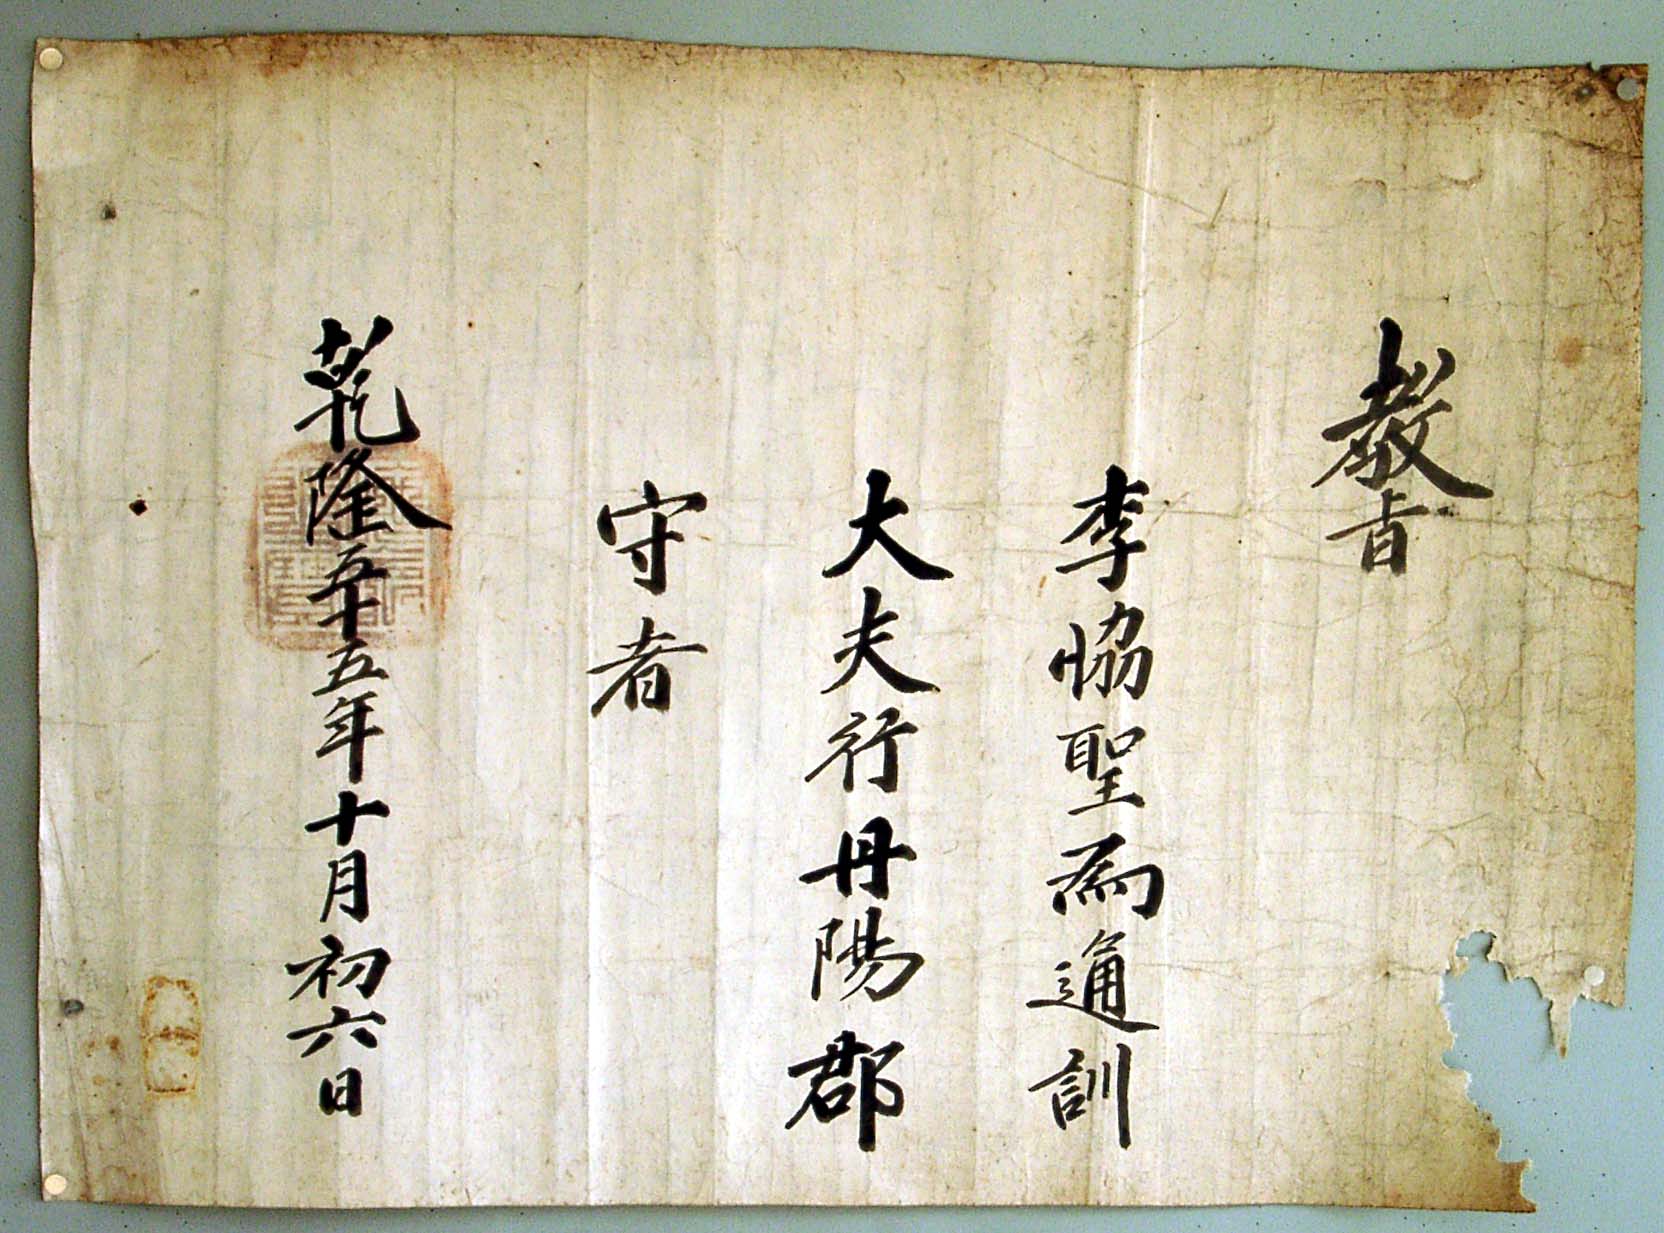 教旨
李恊聖爲通訓
大夫行丹陽郡
守者
乾隆五十五年十月初六日